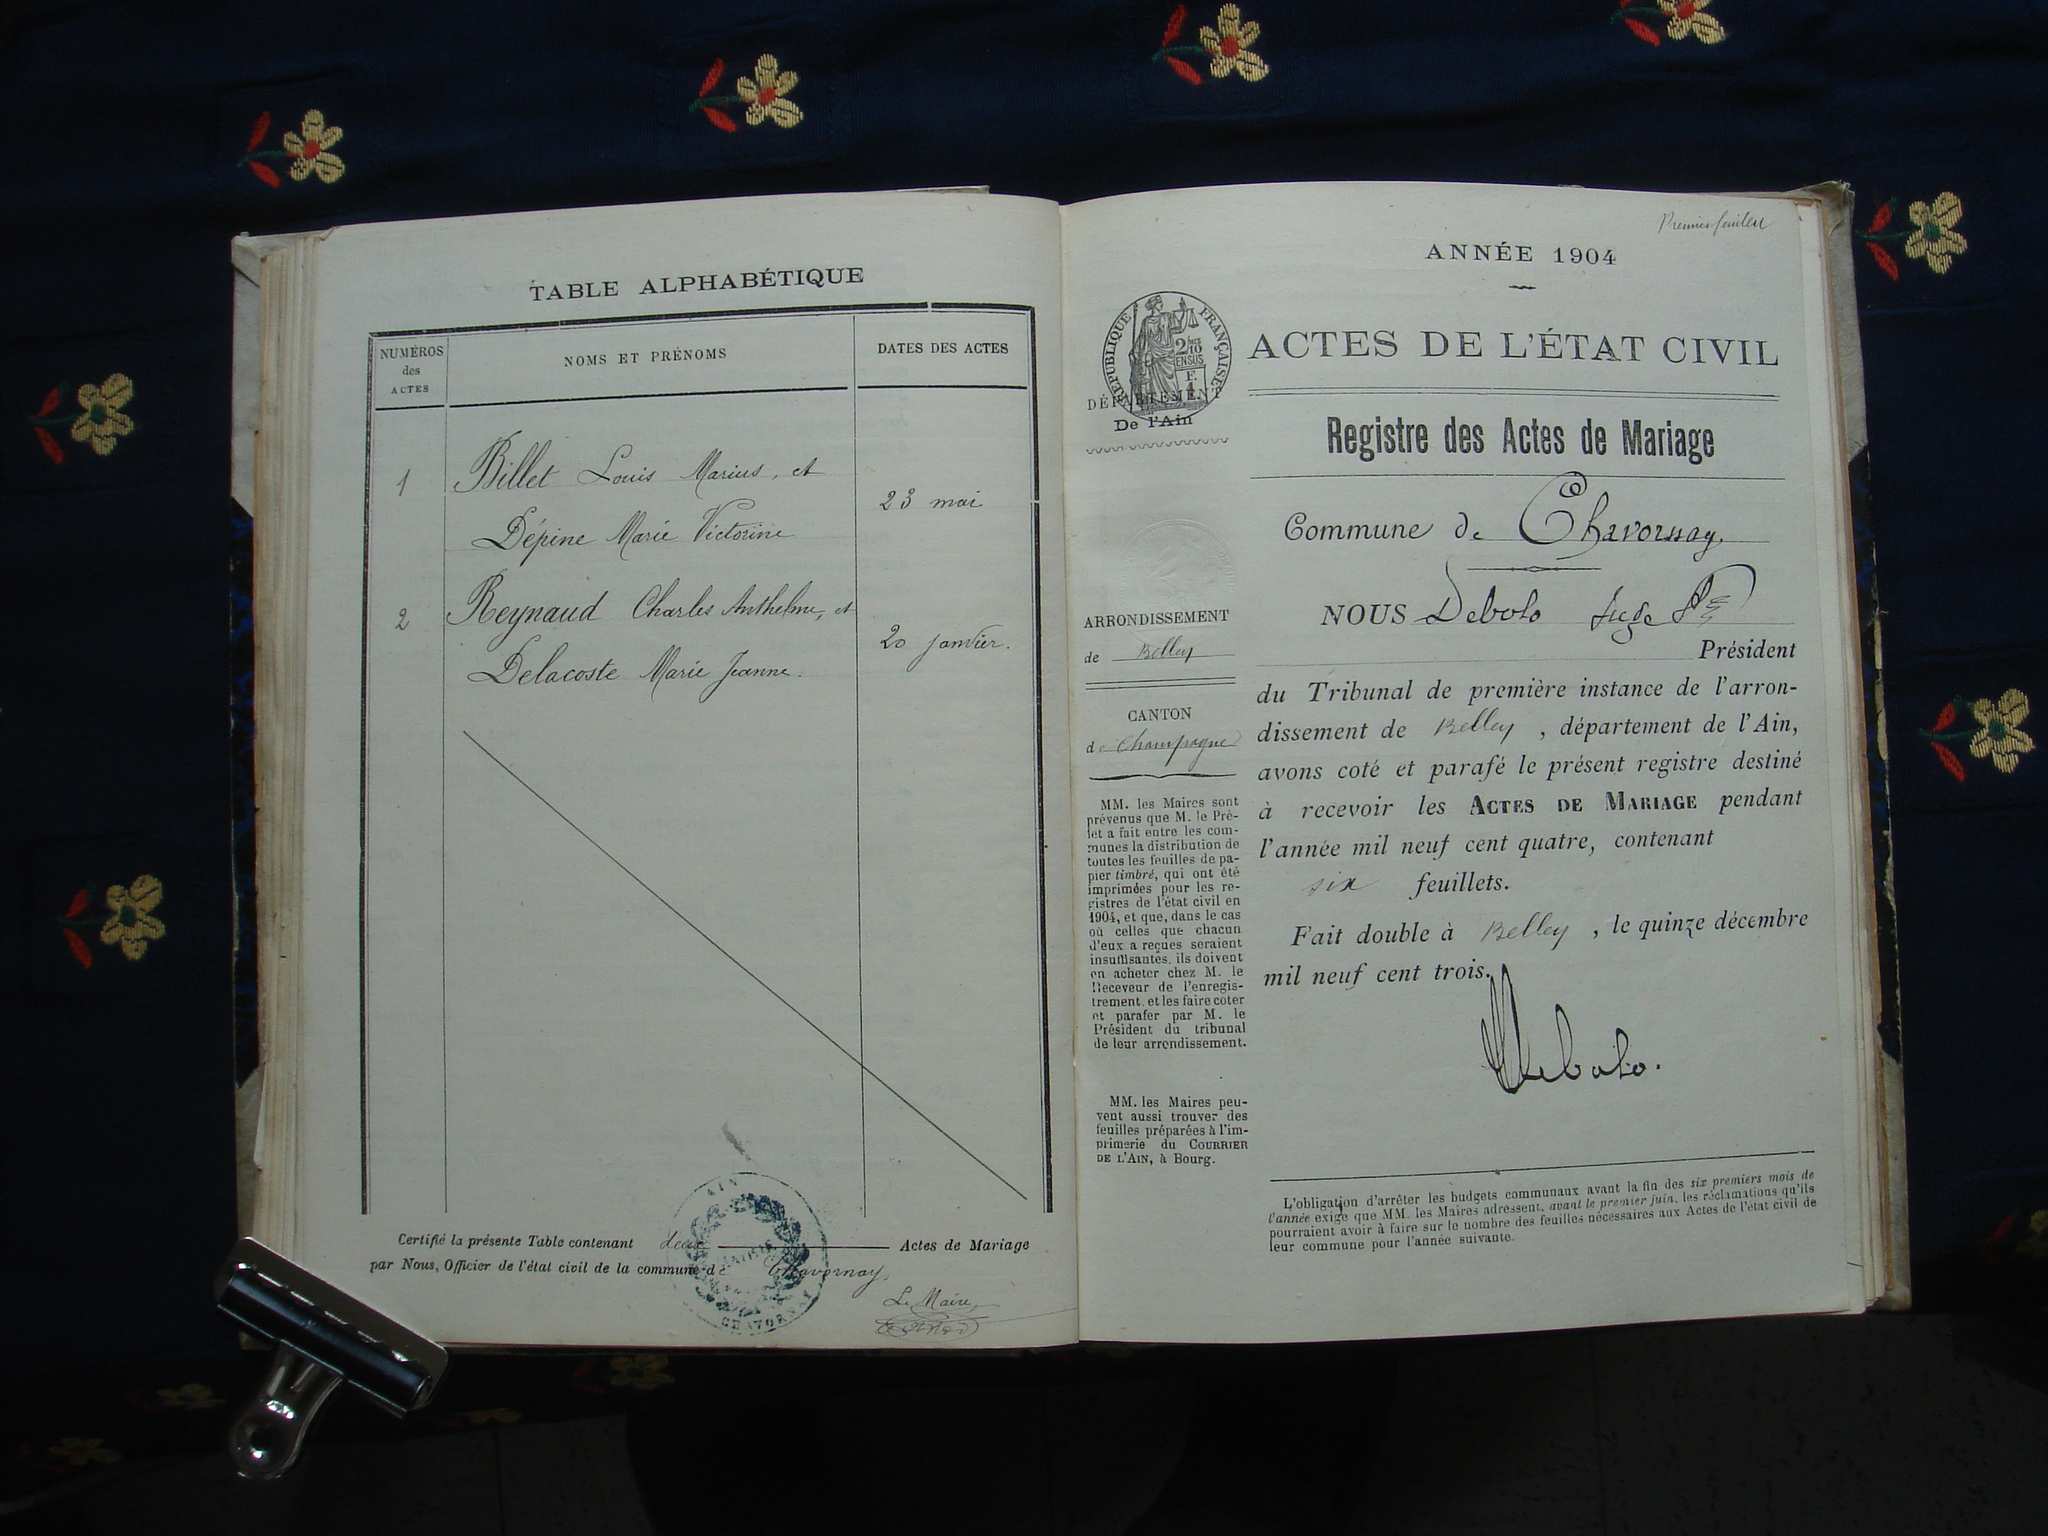 TABLE ALPHABÉTIQUE
NUMÉROS
des
ACTES
NOMS ET PRÉNOMS
DATES DES ACTES
1
Billet Louis Marius, et
Dépine Marie Victorine
23 mai
2
Reynaud Charles Anthelme, et
Delacoste Marie Jeanne.
20 janvier.
Certifié la présente Table contenant deux Actes de Mariage
par Nous, Officier de l'état civil de la commune de Chavornay,
AIN
MAIRIE
CHAVORNAY
Le Maire,
Premier feuillet
ANNÉE 1904
RÉPUBLIQUE FRANÇAISE
2/10
EN SUS
ACTES DE L'ÉTAT CIVIL
DÉPARTEMENT
De l'Ain
Registre des Actes de Mariage
Commune de Chavornay,
NOUS Debolo Juge
Président
ARRONDISSEMENT
de Belley
CANTON
de Champagne
du Tribunal de première instance de l'arron-
dissement de Belley, département de l'Ain,
avons coté et parafé le présent registre destiné
à recevoir les ACTES DE MARIAGE pendant
l'année mil neuf cent quatre, contenant
six feuillets.
Fait double à Belley, le quinze décembre
mil neuf cent trois.
Debolo.
MM. les Maires sont
prévenus que M. le Pré-
fet a fait entre les com-
munes la distribution de
toutes les feuilles de pa-
pier timbré, qui ont été
imprimées pour les re-
gistres de l'état civil en
1904, et que, dans le cas
où celles que chacun
d'eux a reçues seraient
insuffisantes, ils doivent
en acheter chez M. le
Receveur de l'enregis-
trement, et les faire coter
et parafer par M. le
Président du tribunal
de leur arrondissement.
MM. les Maires peu-
vent aussi trouver des
feuilles préparées à l'im-
primerie du COURRIER
DE L'AIN, à Bourg.
L'obligation d'arrêter les budgets communaux avant la fin des six premiers mois de
l'année exige que MM. les Maires adressent, avant le premier juin, les réclamations qu'ils
pourraient avoir à faire sur le nombre des feuilles nécessaires aux Actes de l'état civil de
leur commune pour l'année suivante.